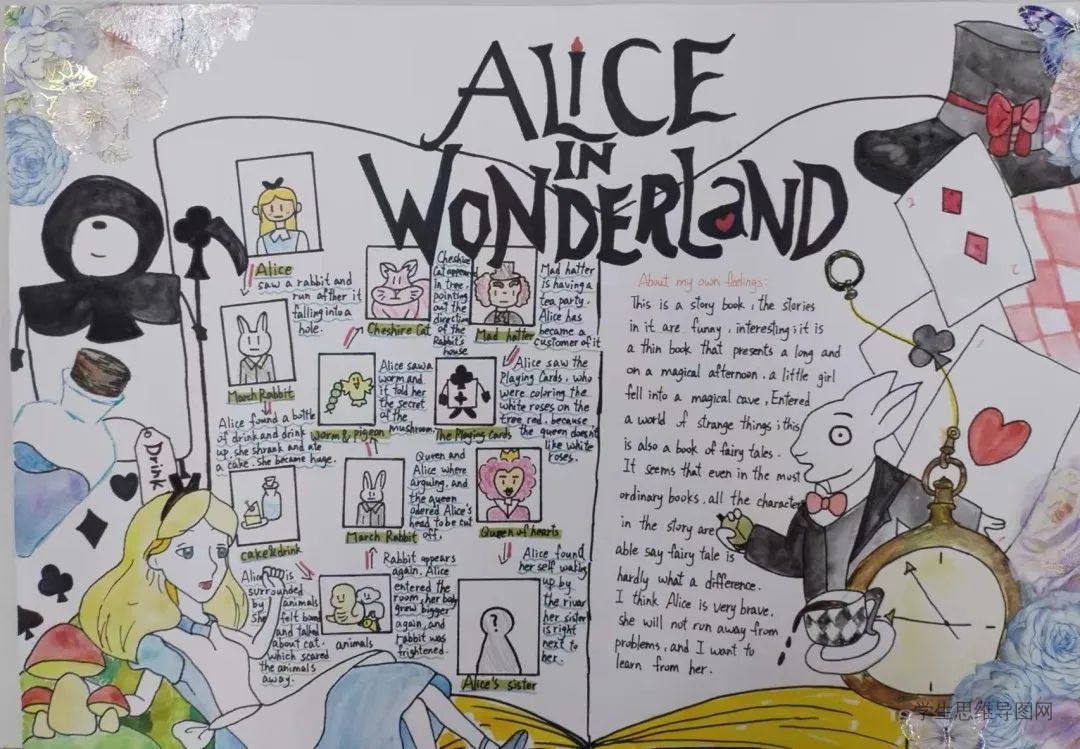 ALICE
IN
WONDERLaND
Alice
saw a rabbit and
run afther it
falling into a
hole.
March Rabbit
Alice found a bottle
of drink and drink
up, she shrank and ate
a cake. she became huge.
cake&drink
Alice is
surrounded
by animals
She felt bored
and talked
about cat.
Which scared
the animals
away.
animals
Rabbit appears
again. Alice
entered the
room, her body
grew bigger
again, and
rabbit was
frightened.
March Rabbit
Worm & pigeon
Alice saw a
worm and
it told her
the secret
of the
mushroom.
Cheshire Cat
Cheshire
Cat appeared
in tree
pointing
out the
direction
of the
Rabbit's
house
Mad hatter
Mad hatter
is having a
tea party.
Alice has
became a
customer of it
The Playing Cards
Alice saw the
Playing Cards, who
were coloring the
white roses on the
tree red, because
the queen doesn't
like white
roses.
Queen and
Alice where
arguing, and
the queen
odered Alice's
head to be cut
off.
Queen of hearts
Alice found
her self waking
up by
the river
her sister
is right
next to
her.
?
Alice's sister
About my own feelings:
This is a story book, the stories
in it are funny, interesting; it is
a thin book that presents a long and
on a magical afternoon. a little girl
fell into a magical cave, Entered
a world of strange things; this
is also a book of fairy tales.
It seems that even in the most
ordinary books, all the character
in the story are
able say fairy tale is
hardly what a difference.
I think Alice is very brave.
she will not run away from
problems, and I want to
learn from her.
Drink
2
2
学生思维导图网